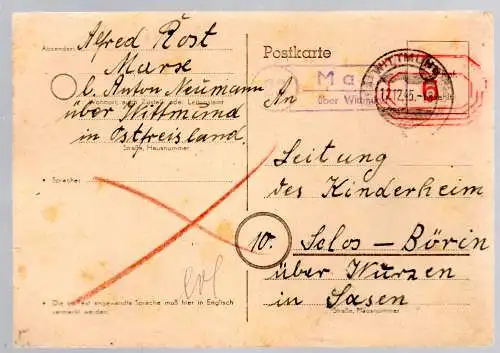 Absender: Alfred Rost
Marse
b. Anton Neumann
Wohnort, auch Zustell- oder Leitpostamt
über Wittmund
in Ostfreisland.
Straße, Hausnummer
• Sprache:
• Die bei Text angewandte Sprache muß hier in Englisch
vermerkt werden.
Postkarte
WITTMUND
17.12.45.-
6
Ma
über Wittmu
An
Leitung
des Kinderheim
10. Selos – Börin
über Wurzen
in Sasen
Straße, Hausnummer